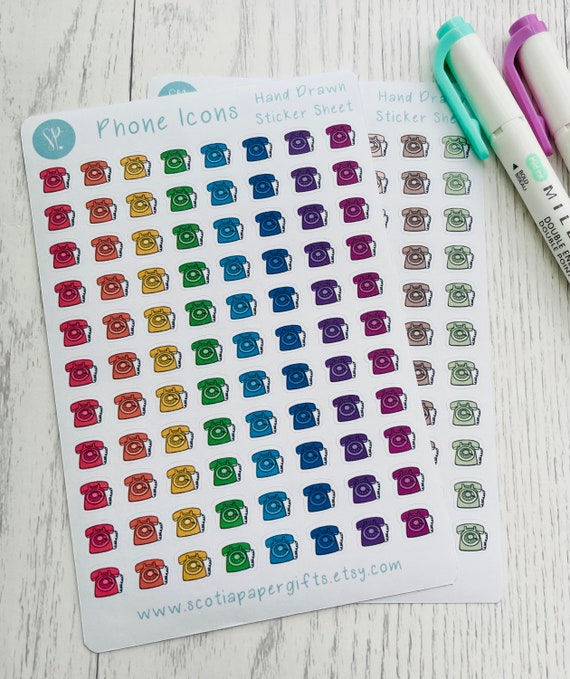 SP.
Phone Icons
Hand Drawn
Sticker Sheet
Hand Drawn
Sticker Sheet
www.scotiapapergifts.etsy.com
BOLD
MIL
DOUBLE EN
DOUBLE POIN